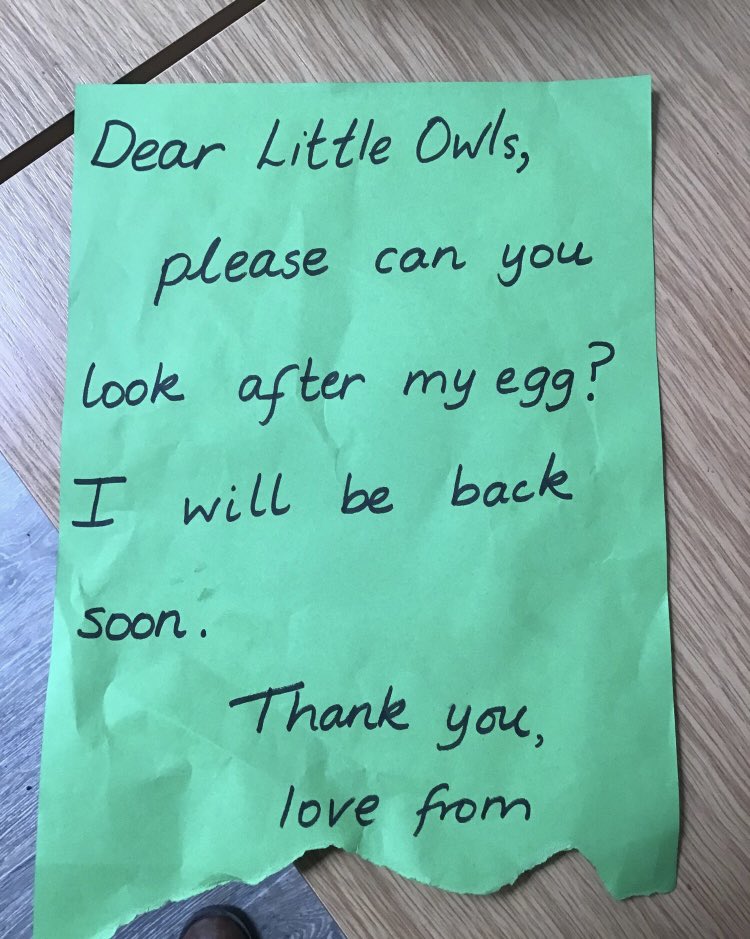 Dear Little Owls,
please can you
look after my egg?
I will be back
soon.
Thank you,
love from